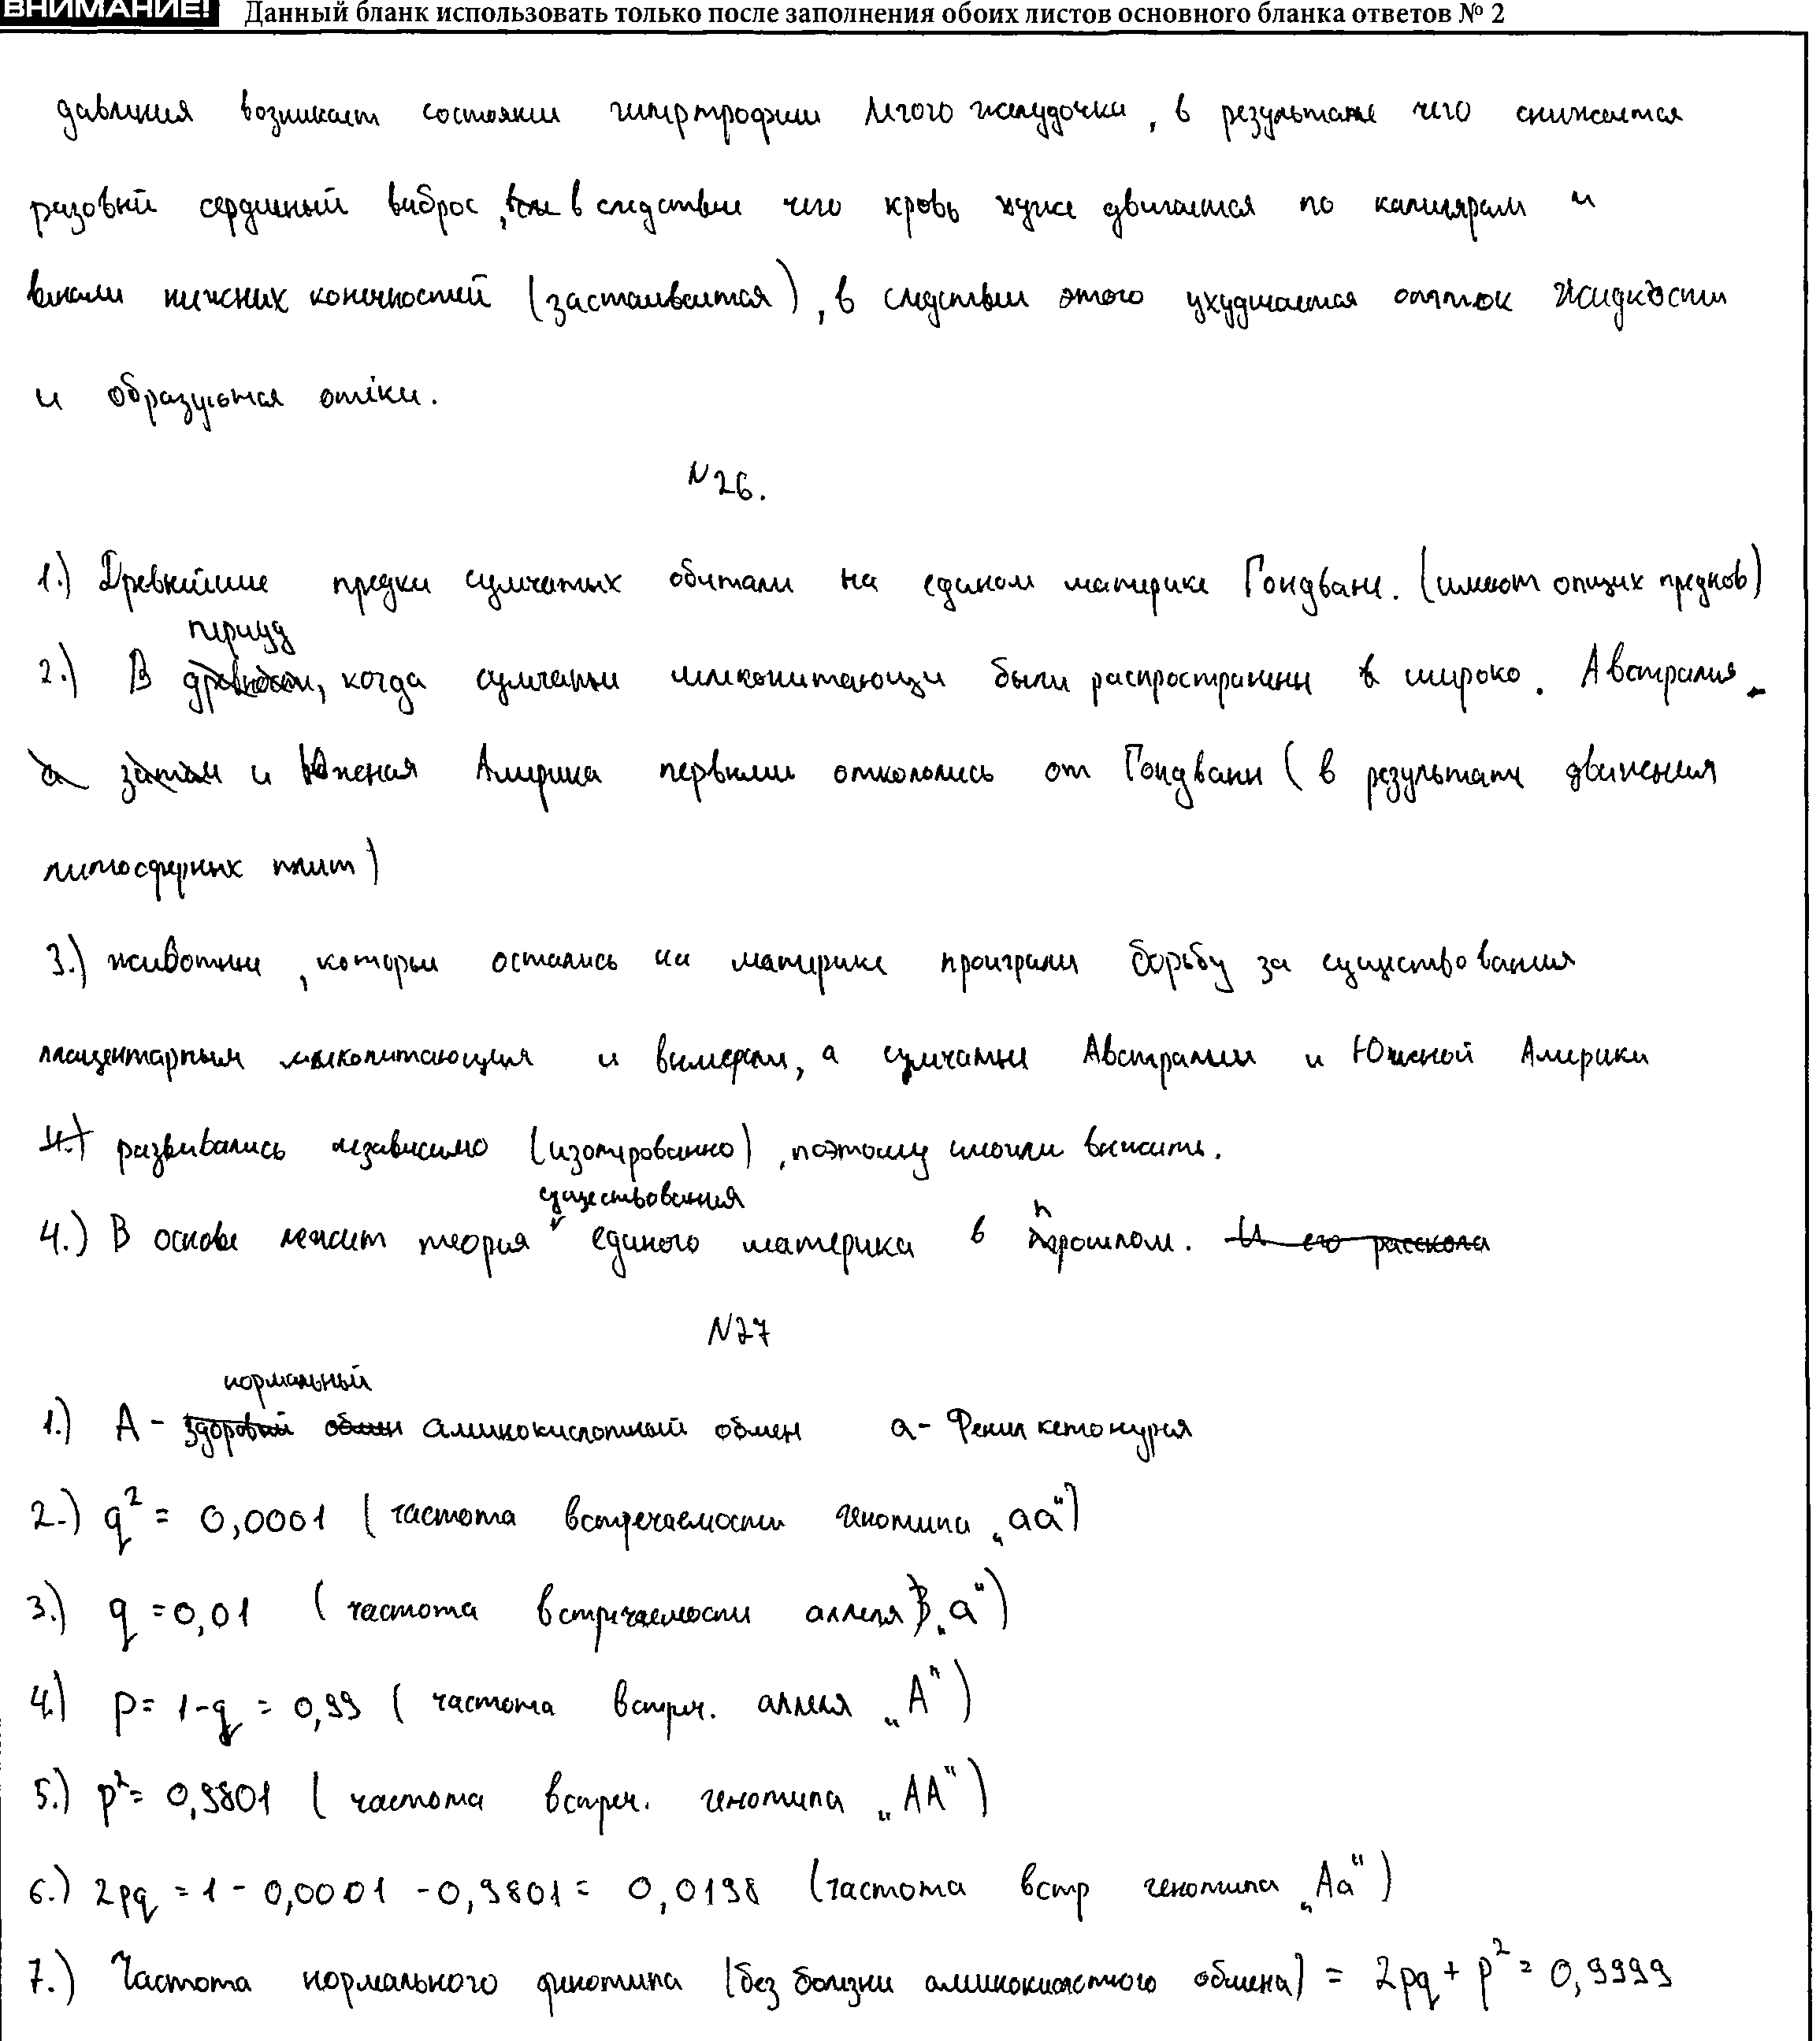 ВНИМАНИЕ! Данный бланк использовать только после заполнения обоих листов основного бланка ответов № 2
давления возникает состояние гипертрофии левого желудочка, в результате чего снижается
разовый сердечный выброс, в следствие чего кровь хуже двигается по капилярам и
венами нижних конечностей (застаивается), в следствии этого ухудшается отток жидкости
и образуются отёки.
N26.
1.) Древнейшие предки сумчатых обитали на едином материке Гондване. (имеют общих предков)
период
2.) В древности, когда сумчатые млекопитающие были распространены в широко. Австралия
а затем и Южная Америка первыми откололись от Гондваны (в результате движения
литосферных плит)
3.) животные, которые остались на материке проиграли борьбу за существования
плацентарным млекопитающим и вымерли, а сумчатые Австралии и Южной Америки
4.) развивались независимо (изолированно), поэтому смогли выжить.
существования
4.) В основе лежит теория единого материка в прошлом. И его раскола
N27
нормальный
1.) А - здоровый обмен аминокислотный обмен а - Фенилкетонурия
2.) q² = 0,0001 (частота встречаемости генотипа „аа“)
3.) q = 0,01 (частота встречаемости аллеля „а“)
4.) p = 1-q = 0,99 (частота встреч. аллеля „А“)
5.) p² = 0,9801 (частота встреч. генотипа „АА“)
6.) 2pq = 1 - 0,0001 - 0,9801 = 0,0198 (частота встр генотипа „Аа“)
7.) Частота нормального фенотипа (без болезни аминокислотного обмена) = 2pq + p² = 0,9999